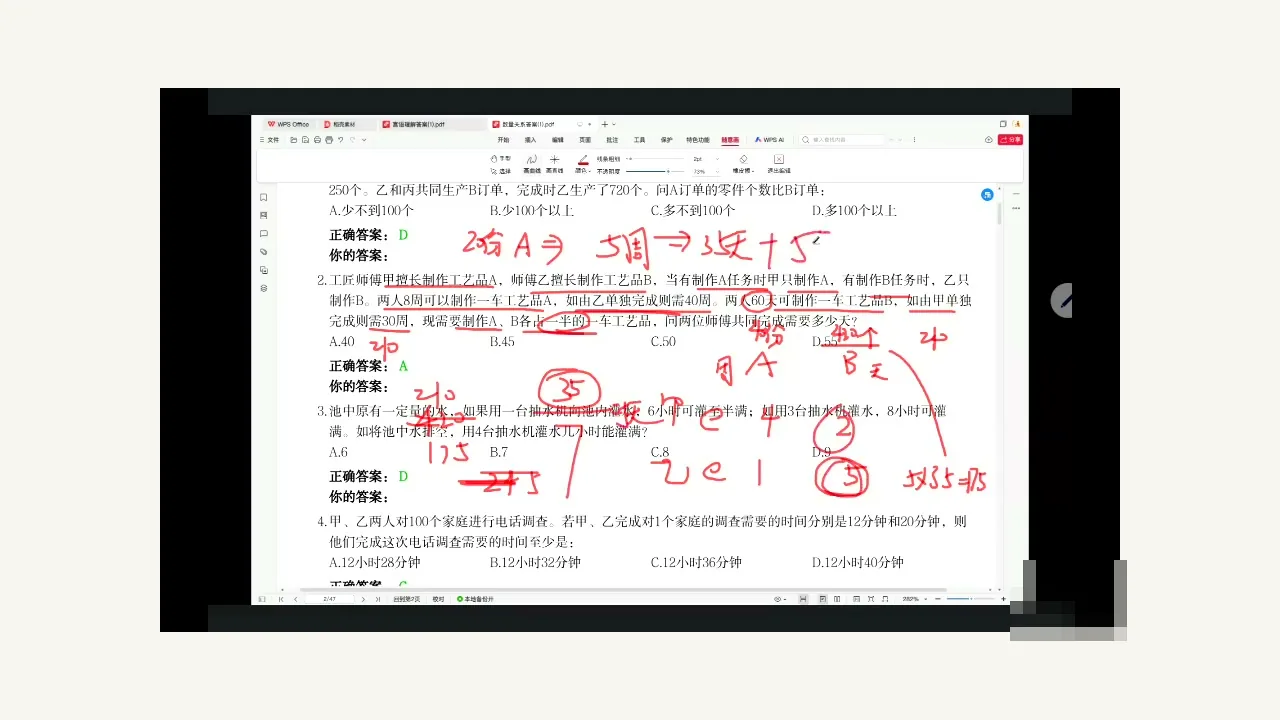 WPS Office 稻壳素材 言语理解答案(1).pdf 数量关系答案(1).pdf
文件 开始 插入 编辑 页面 批注 工具 保护 特色功能 随意画 WPS AI 输入查找内容 分享
手型 选择 画曲线 画直线 颜色 线条粗细 2pt 不透明度 73% 橡皮擦 退出编辑
250个。乙和丙共同生产B订单，完成时乙生产了720个。问A订单的零件个数比B订单：
A.少不到100个 B.少100个以上 C.多不到100个 D.多100个以上
正确答案： D
20份 A ⇒ 5周 → 35天 + 5
你的答案：
2.工匠师傅甲擅长制作工艺品A，师傅乙擅长制作工艺品B，当有制作A任务时甲只制作A，有制作B任务时，乙只
制作B。两人8周可以制作一车工艺品A，如由乙单独完成则需40周。两人60天可制作一车工艺品B，如由甲单独
完成则需30周，现需要制作A、B各占一半的一车工艺品，问两位师傅共同完成需要多少天？
40份 420个 210
A.40 B.45 C.50 D.55
210
正确答案： A
周 A B 天
你的答案：
210 35
3.池中原有一定量的水，如果用一台抽水机向池内灌水，6小时可灌至半满；如用3台抽水机灌水，8小时可灌
满。如将池中水排空，用4台抽水机灌水几小时能灌满？
甲 e 4 2
A.6 B.7 C.8 D.9
175
正确答案： D
245 乙 e 1 5 5×35=175
你的答案：
4.甲、乙两人对100个家庭进行电话调查。若甲、乙完成对1个家庭的调查需要的时间分别是12分钟和20分钟，则
他们完成这次电话调查需要的时间至少是：
A.12小时28分钟 B.12小时32分钟 C.12小时36分钟 D.12小时40分钟
正确答案： C
2/47 回到第2页 校对 本地备份开 282%